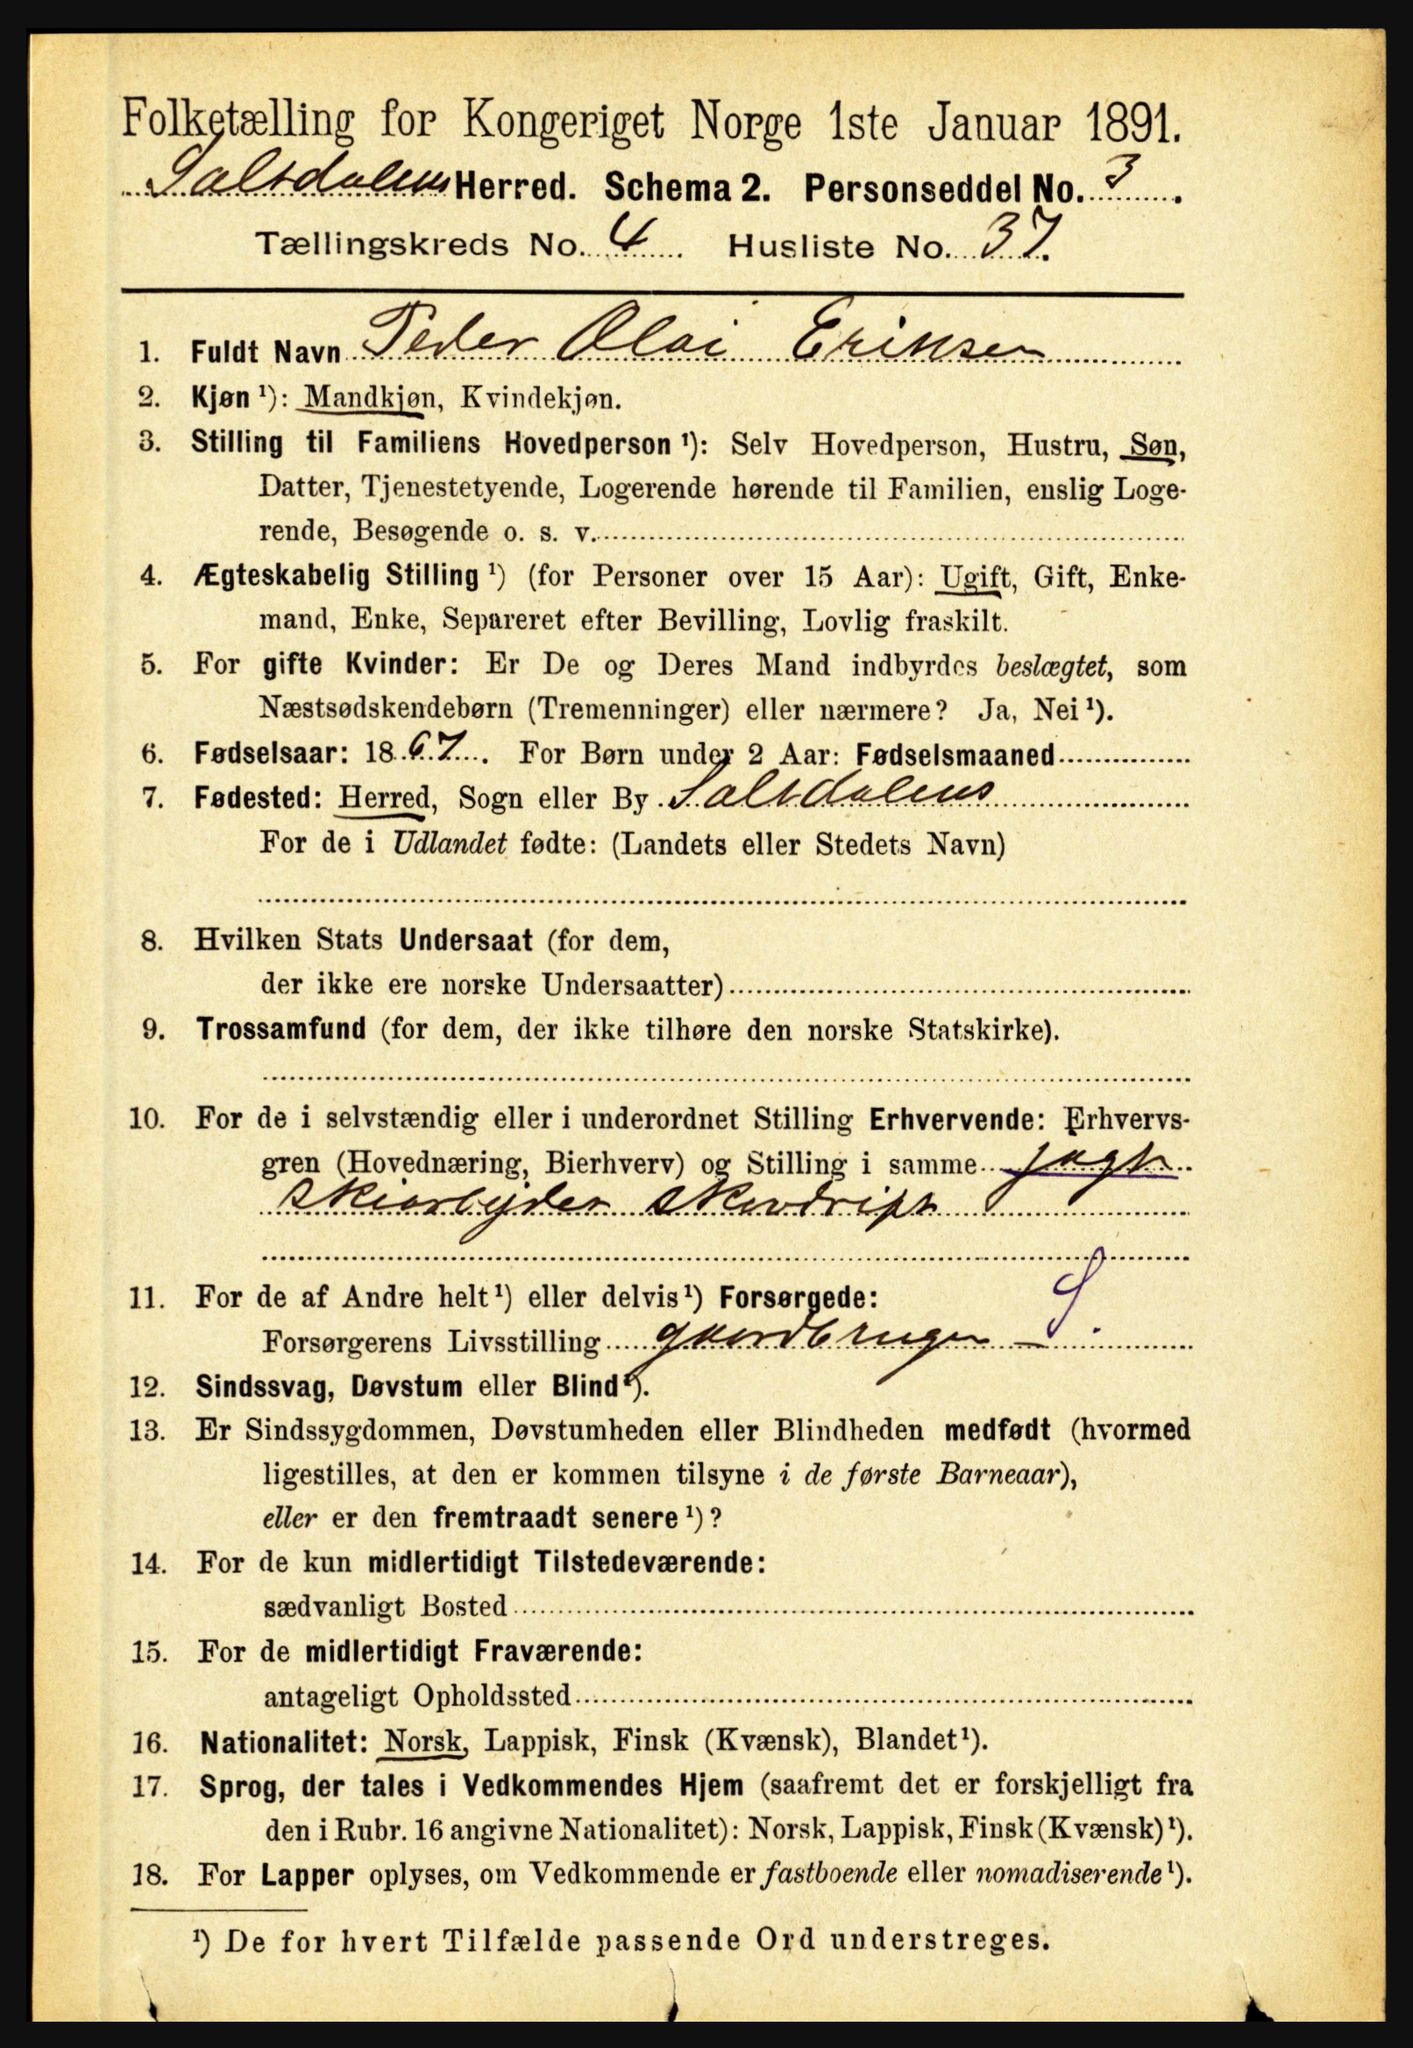 Folketælling for Kongeriget Norge 1ste Januar 1891.
Saltdalens Herred. Schema 2. Personseddel No. 3.
Tællingskreds No. 4 Husliste No. 37.
1. Fuldt Navn Peder Olai Eriksen
2. Kjøn ¹): Mandkjøn, Kvindekjøn.
3. Stilling til Familiens Hovedperson ¹): Selv Hovedperson, Hustru, Søn,
Datter, Tjenestetyende, Logerende hørende til Familien, enslig Loge-
rende, Besøgende o. s. v.
4. Ægteskabelig Stilling ¹) (for Personer over 15 Aar): Ugift, Gift, Enke-
mand, Enke, Separeret efter Bevilling, Lovlig fraskilt.
5. For gifte Kvinder: Er De og Deres Mand indbyrdes beslægtet, som
Næstsødskendebørn (Tremenninger) eller nærmere? Ja, Nei ¹).
6. Fødselsaar: 1867. For Børn under 2 Aar: Fødselsmaaned
7. Fødested: Herred, Sogn eller By Saltdalens
For de i Udlandet fødte: (Landets eller Stedets Navn)
8. Hvilken Stats Undersaat (for dem,
der ikke ere norske Undersaatter)
9. Trossamfund (for dem, der ikke tilhøre den norske Statskirke).
10. For de i selvstændig eller i underordnet Stilling Erhvervende: Erhvervs-
gren (Hovednæring, Bierhverv) og Stilling i samme jagt
skiarbyder skovdrift
11. For de af Andre helt ¹) eller delvis ¹) Forsørgede:
Forsørgerens Livsstilling gaardbruger — S
12. Sindssvag, Døvstum eller Blind ¹).
13. Er Sindssygdommen, Døvstumheden eller Blindheden medfødt (hvormed
ligestilles, at den er kommen tilsyne i de første Barneaar),
eller er den fremtraadt senere ¹)?
14. For de kun midlertidigt Tilstedeværende:
sædvanligt Bosted
15. For de midlertidigt Fraværende:
antageligt Opholdssted
16. Nationalitet: Norsk, Lappisk, Finsk (Kvænsk), Blandet ¹).
17. Sprog, der tales i Vedkommendes Hjem (saafremt det er forskjelligt fra
den i Rubr. 16 angivne Nationalitet): Norsk, Lappisk, Finsk (Kvænsk) ¹).
18. For Lapper oplyses, om Vedkommende er fastboende eller nomadiserende ¹).
¹) De for hvert Tilfælde passende Ord understreges.